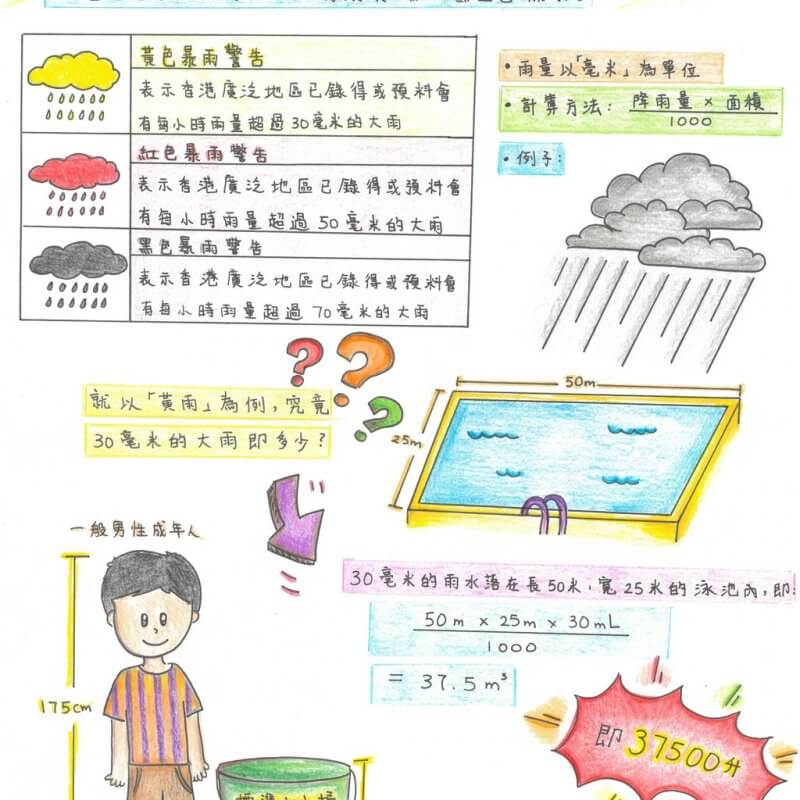 黃色暴雨警告
表示香港廣泛地區已錄得或預料會
有每小時雨量超過30毫米的大雨
紅色暴雨警告
表示香港廣泛地區已錄得或預料會
有每小時雨量超過50毫米的大雨
黑色暴雨警告
表示香港廣泛地區已錄得或預料會
有每小時雨量超過70毫米的大雨
•雨量以「毫米」為單位
•計算方法：降雨量 x 面積
1000
•例子：
就以「黃雨」為例，究竟
30毫米的大雨即多少？
50m
25m
一般男性成年人
175cm
30毫米的雨水落在長50米，寬25米的泳池內，即：
50m x 25m x 30mL
1000
= 37.5m³
即 37500公升